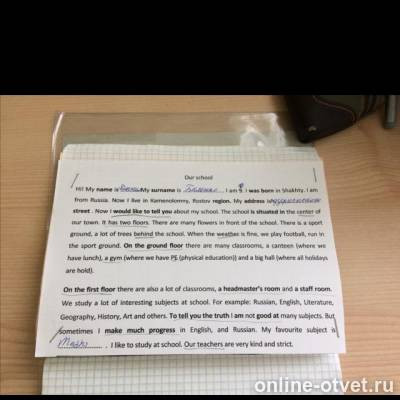 Our school
Hi! My name is My surname is I am 9. I was born in Shakhty. I am
from Russia. Now I live in Kamenolomny, Rostov region. My address is
street . Now I would like to tell you about my school. The school is situated in the center of
our town. It has two floors. There are many flowers in front of the school. There is a sport
ground, a lot of trees behind the school. When the weather is fine, we play football, run in
the sport ground. On the ground floor there are many classrooms, a canteen (where we
have lunch), a gym (where we have PE (physical education)) and a big hall (where all holidays
are hold).
On the first floor there are also a lot of classrooms, a headmaster's room and a staff room.
We study a lot of interesting subjects at school. For example: Russian, English, Literature,
Geography, History, Art and others. To tell you the truth I am not good at many subjects. But
sometimes I make much progress in English, and Russian. My favourite subject is
. I like to study at school. Our teachers are very kind and strict.
online-otvet.ru